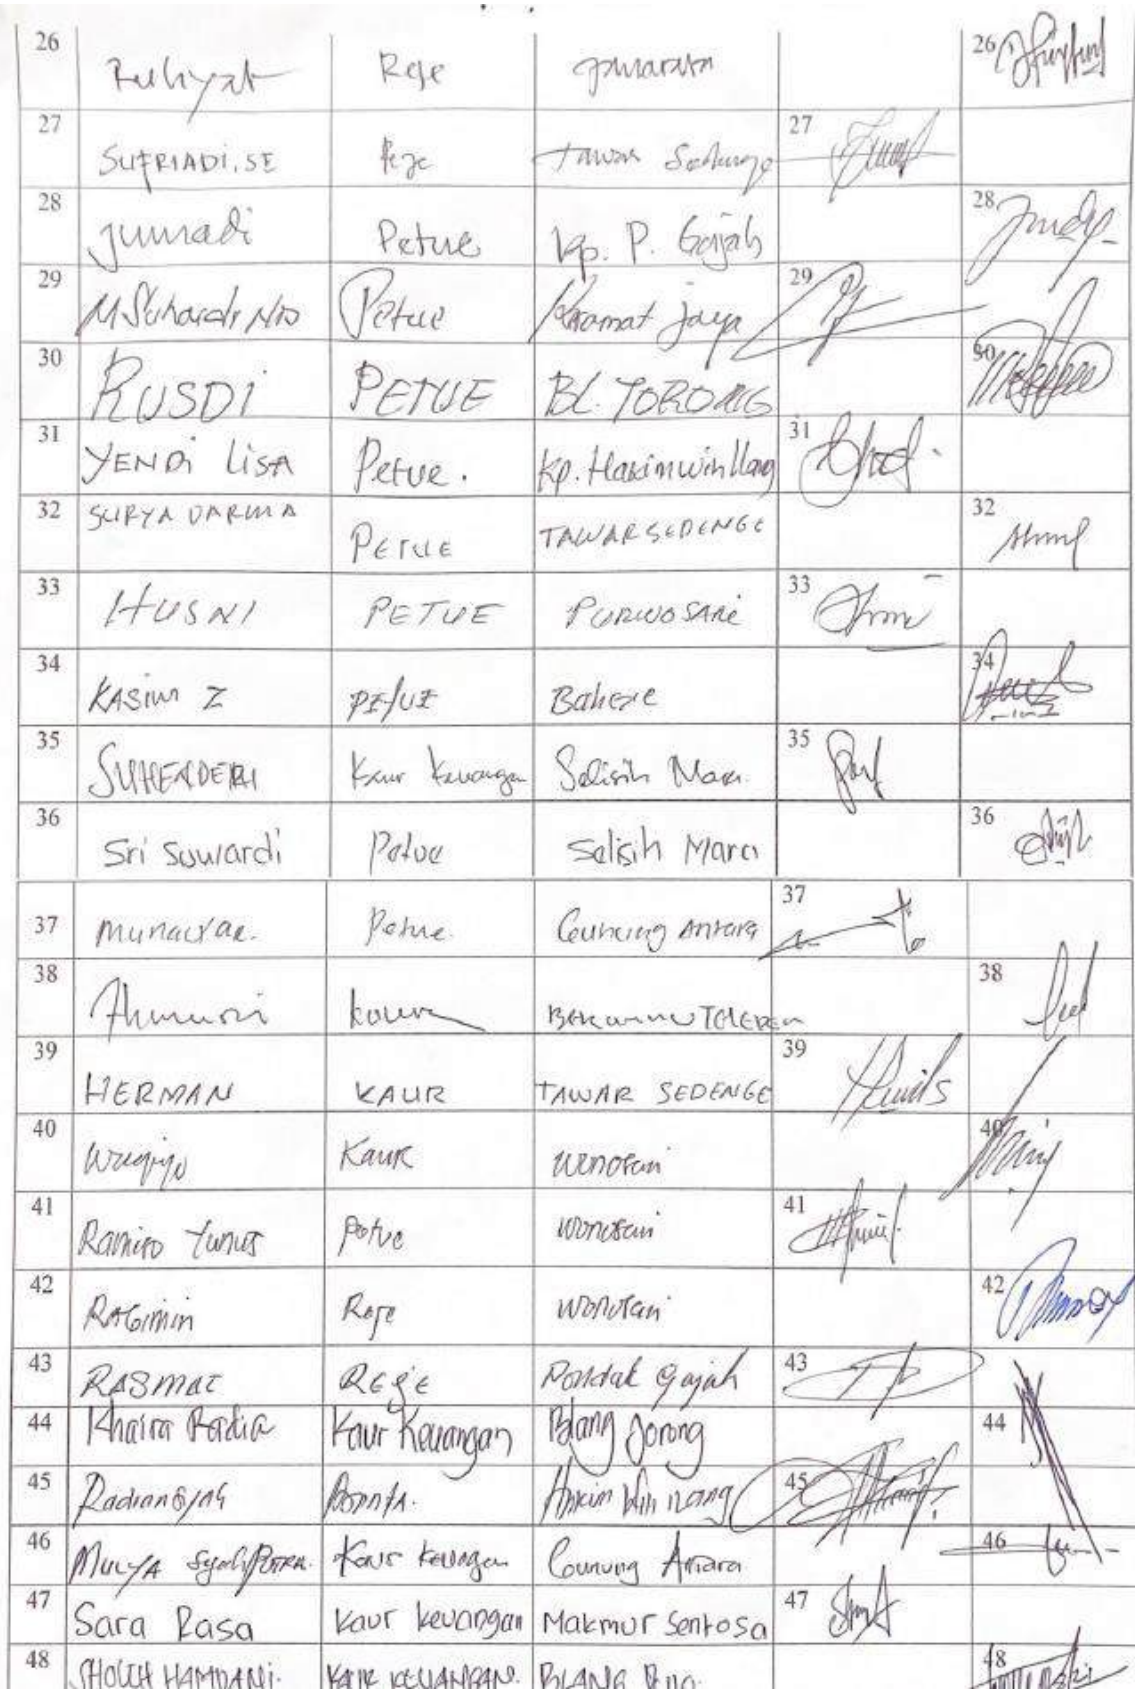 26 Ruhiyat Reje Jamarata 26
27 SUFRIADI, SE Reje Tawar Sedenge 27
28 Jumadi Petue Kp. P. Gajah 28
29 M Suhardi Petue Kramat Jaya 29
30 RUSDI PETUE BL. JORONG 30
31 YENDI LISA Petue. Kp. Hakim win Ilang 31
32 SURYA DARMA PETUE TAWAR SEDENGE 32
33 HUSNI PETUE PURWOSARI 33
34 KASIM Z PETUE Bahgie 34
35 SUHENDERI Kaur Keuangan Selisih Mara. 35
36 Sri Suwardi Petue Selisih Mara 36
37 Munawar. Petue. Gunung Antara 37
38 kaur 38
39 HERMAN KAUR TAWAR SEDENGE 39
40 Kaur Wonosari 40
41 Ramino Yunus Petue Wonosari 41
42 Ragimin Reje Wonosari 42
43 RASMAT REJE Pondok Gajah 43
44 Khaira Radia Kaur Keuangan Blang Jorong 44
45 Hakim Win ilang 45
46 MULYA Syah PUTRA. Kaur Keuangan Gunung Antara 46
47 Sara Rasa Kaur keuangan Makmur Sentosa 47
48 HAMDANI. KAUR KEUANGAN. BLANG 48